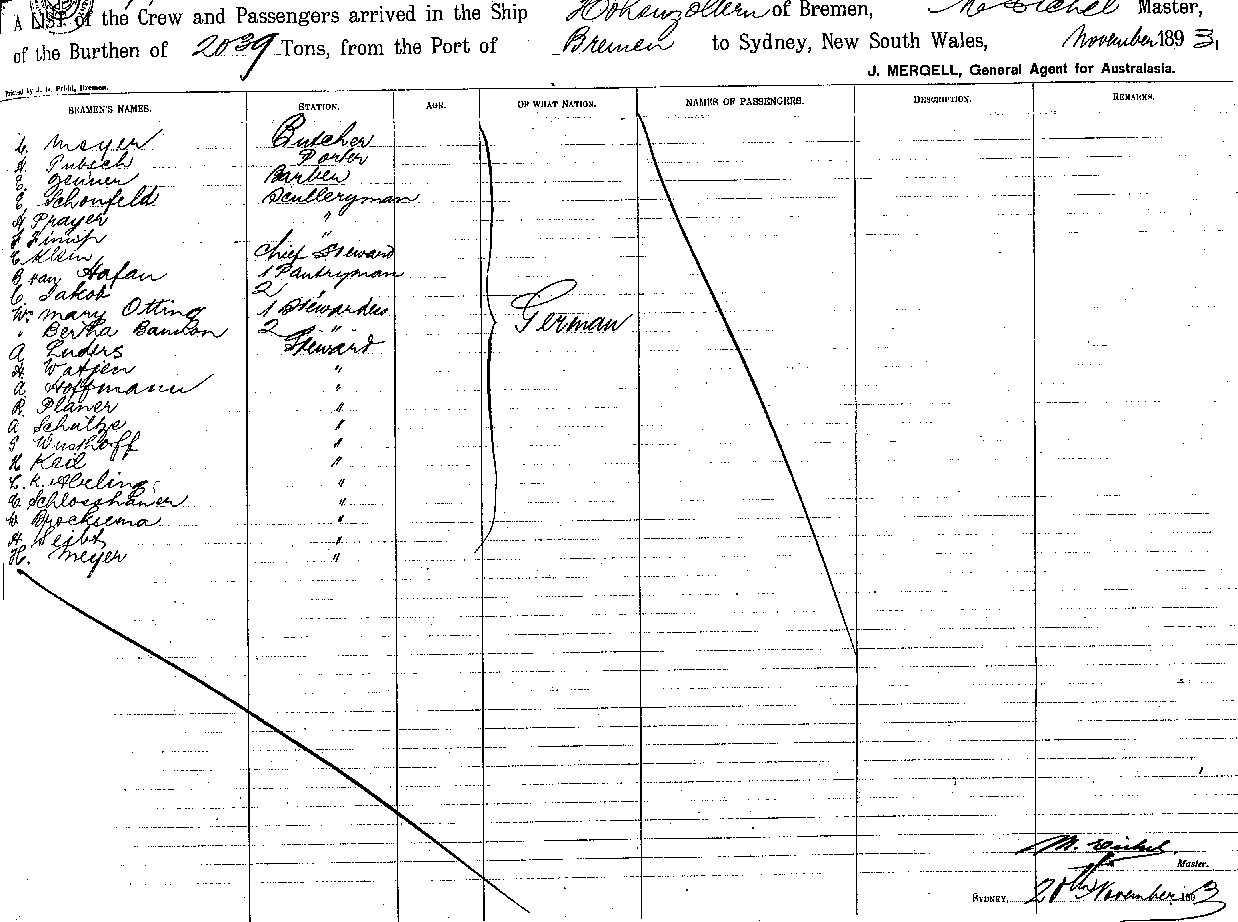 A LIST of the Crew and Passengers arrived in the Ship Hohenzollern of Bremen, Master,
of the Burthen of 2039 Tons, from the Port of Bremen to Sydney, New South Wales, November 1893,
J. MERGELL, General Agent for Australasia.
SEAMEN'S NAMES. STATION. AGE. OF WHAT NATION. NAMES OF PASSENGERS. DESCRIPTION. REMARKS.
C. Meyer Butcher
Porter
Barber
E Schonfeld Sculleryman
A Prayer "
"
C Klein Chief Steward
Hafan 1 Pantryman
C. Jakob 2 "
Mary Otting 1 Stewardess
" Bertha 2 "
German
A Luders Steward
H Watjen "
A Hoffmann "
R. Planer "
A Schultze "
Wusthoff "
H Keil "
"
C Schlosshauer "
Brocksema "
A Seibt
H. Meyer "
Master.
SYDNEY, 20th November 1893